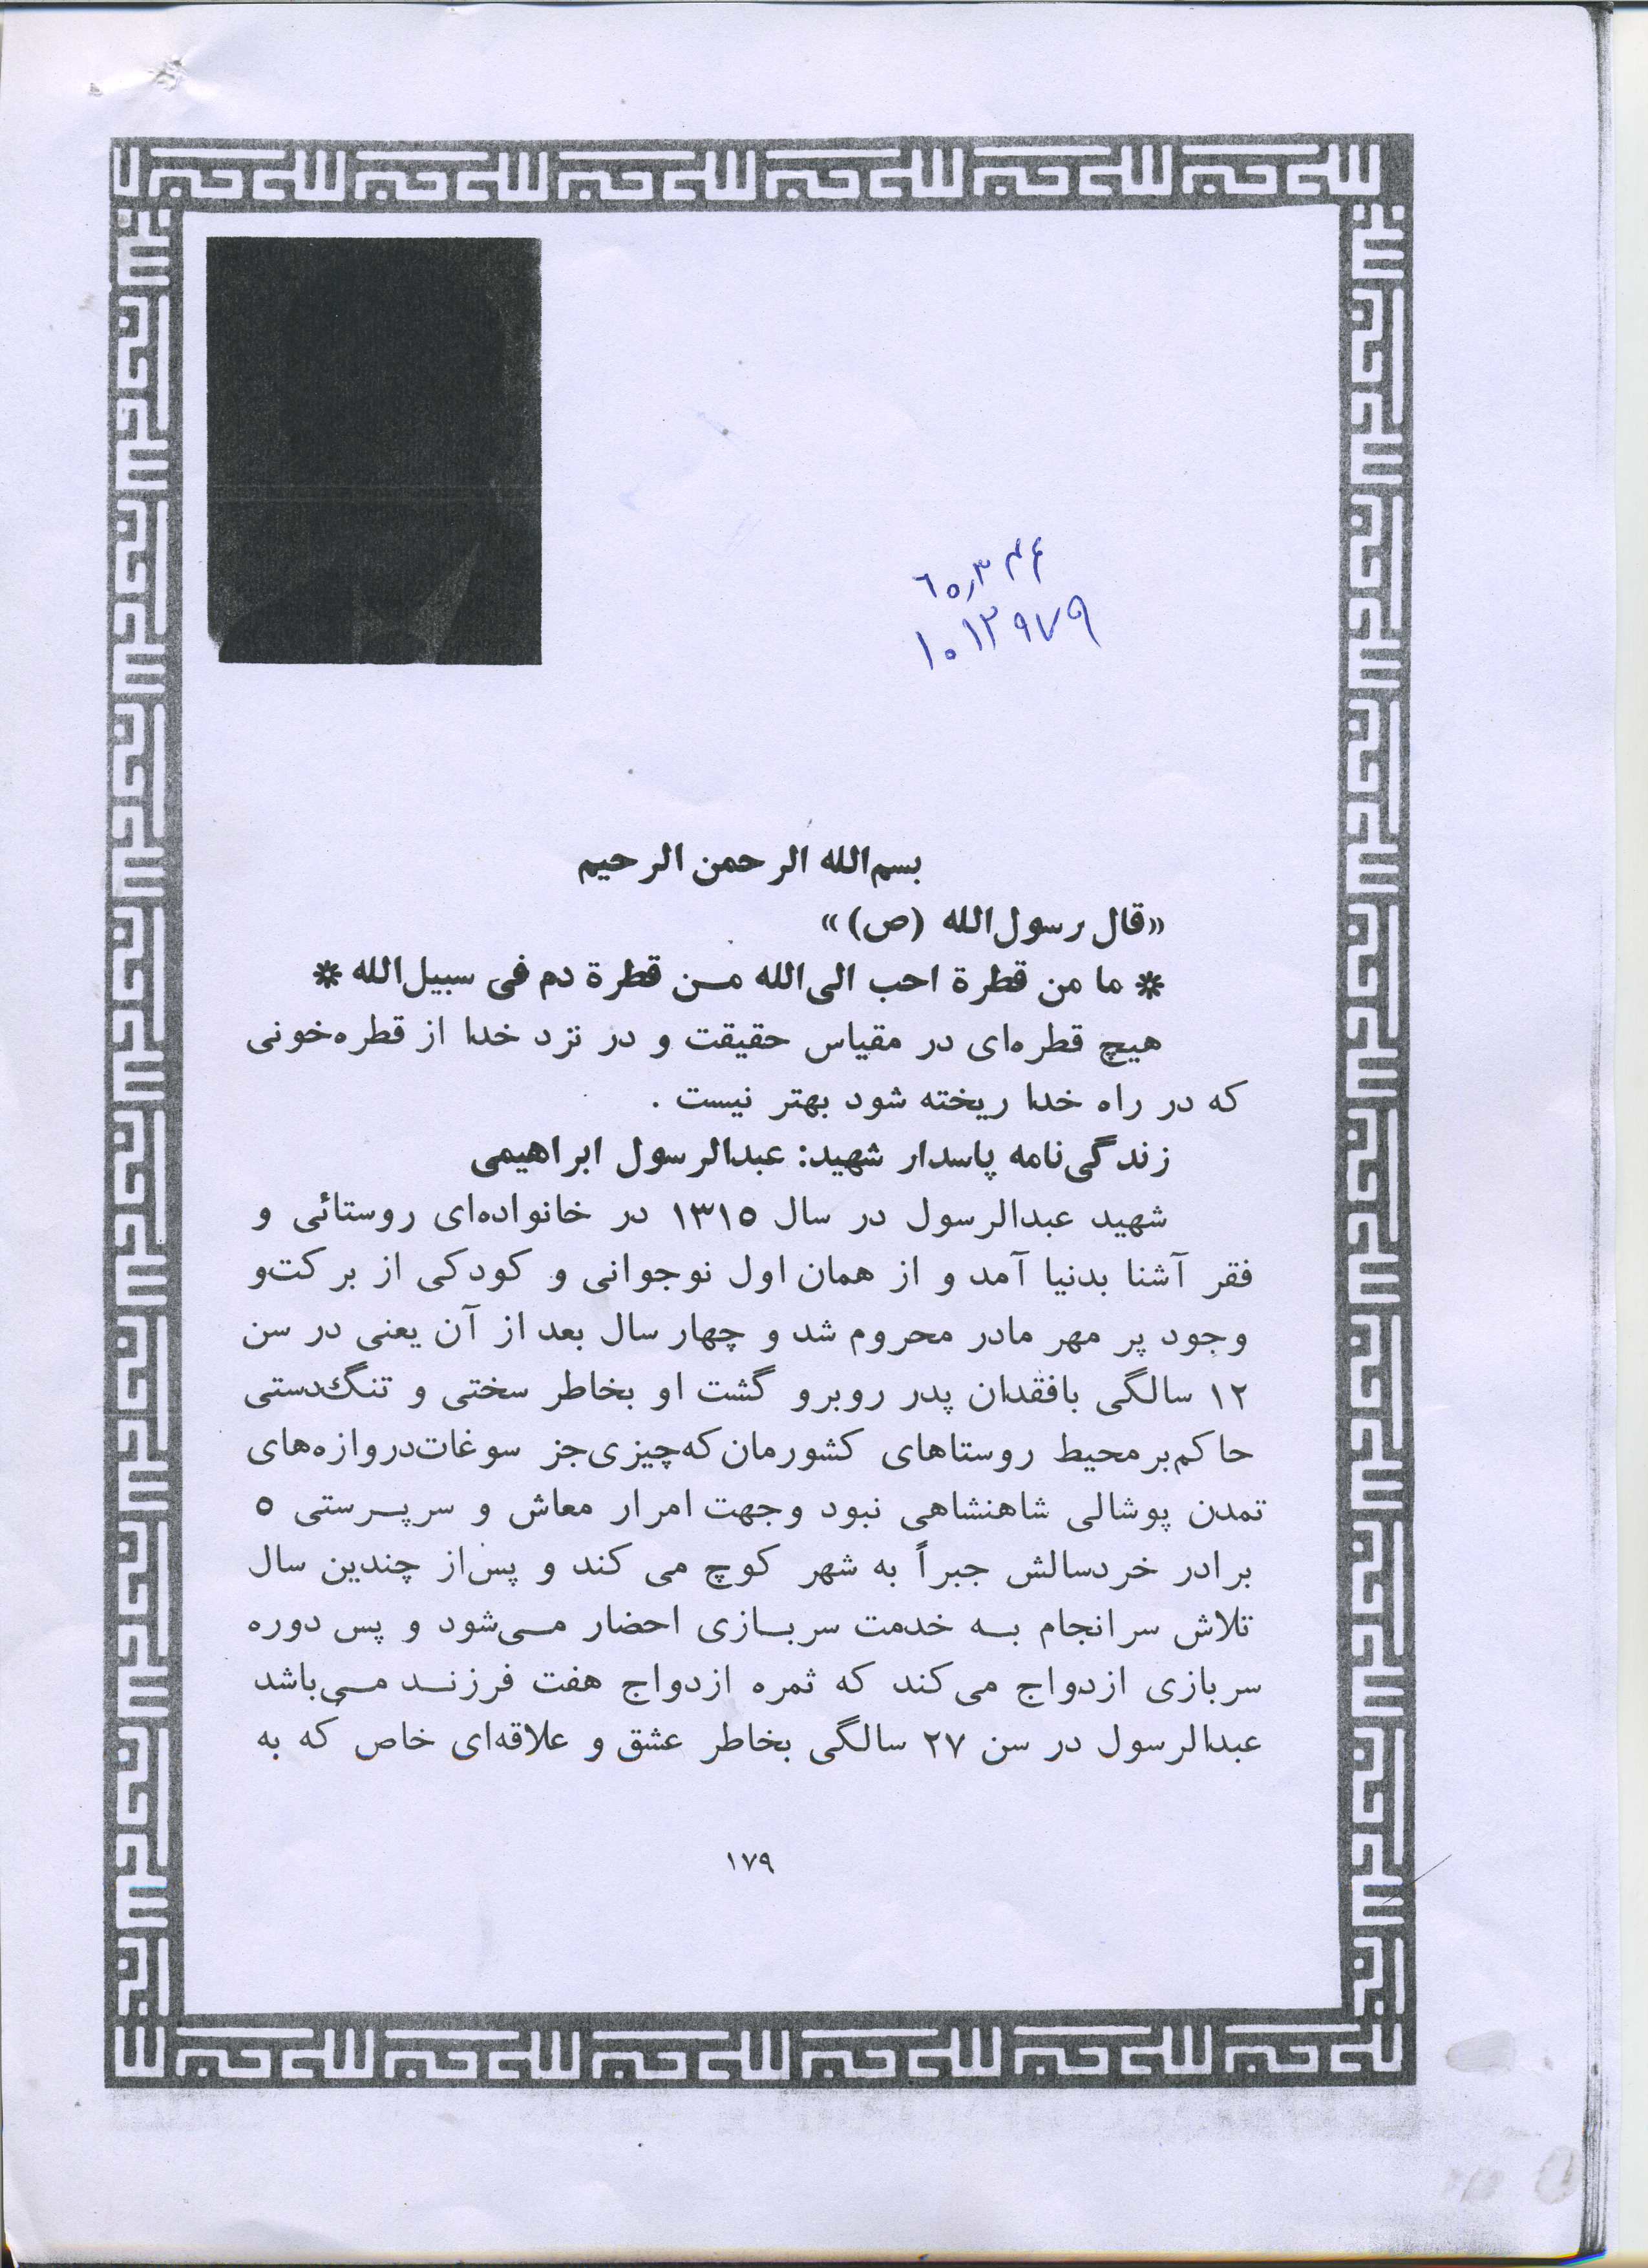 بسم‌الله الرحمن الرحیم
«قال رسول‌الله (ص)»
* ما من قطرة احب الی‌الله مـن قطرة دم فی سبیل‌الله *
هیچ قطره‌ای در مقیاس حقیقت و در نزد خدا از قطره‌خونی
که در راه خدا ریخته شود بهتر نیست .
زندگی‌نامه پاسدار شهید: عبدالرسول ابراهیمی
شهید عبدالرسول در سال ۱۳۱۵ در خانواده‌ای روستائی و
فقر آشنا بدنیا آمد و از همان اول نوجوانی و کودکی از برکت‌و
وجود پر مهر مادر محروم شد و چهار سال بعد از آن یعنی در سن
۱۲ سالگی بافقدان پدر روبرو گشت او بخاطر سختی و تنگ‌دستی
حاکم‌بر محیط روستاهای کشورمان‌که‌چیزی‌جز سوغات‌دروازه‌های
تمدن پوشالی شاهنشاهی نبود و جهت امرار معاش و سرپـرستی ۵
برادر خردسالش جبراً به شهر کوچ می کند و پس‌از چندین سال
تلاش سرانجام بـه خدمت سربـازی احضار مـی‌شود و پس دوره
سربازی ازدواج می‌کند که ثمره ازدواج هفت فرزنـد مـی‌باشد
عبدالرسول در سن ۲۷ سالگی بخاطر عشق و علاقه‌ای خاص که به
۱۷۹